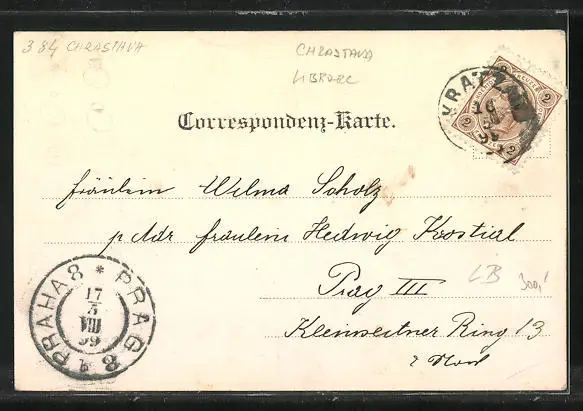 384 CHRASTAVA
CHRASTAVA
LIBEREC
KRATZAU
2 2
2 2
Correspondenz-Karte.
fräulein Wilma Scholz
p Adr fräulein Hedwig Kostial
Prag III
LB 300,-
Kleinseitner Ring 13
PRAHA 8 * PRAG 8
17
VIII
99